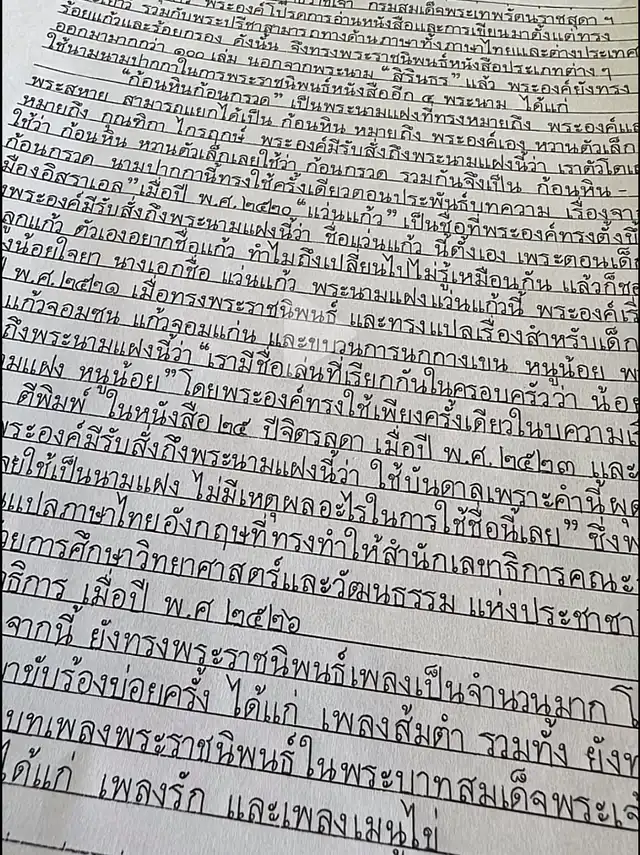 กรมสมเด็จพระเทพรัตนราชสุดา ฯ
รวมกับพระปรีชาสามารถทางด้านภาษาทั้งภาษาไทยและต่างประเทศ พระองค์โปรดการอ่านหนังสือและการเขียนมาตั้งแต่ทรง
ร้อยแก้วและร้อยกรอง ดังนั้น จึงทรงพระราชนิพนธ์หนังสือประเภทต่าง ๆ
ออกมามากกว่า ๑๐๐ เล่ม นอกจากพระนาม “สิรินธร” แล้ว พระองค์ยังทรง
ใช้นามนามปากกาในการพระราชนิพนธ์หนังสืออีก ๔ พระนาม ได้แก่
“ก้อนหินก้อนกรวด” เป็นพระนามแฝงที่ทรงหมายถึง พระองค์และ
พระสหาย สามารถแยกได้เป็น ก้อนหิน หมายถึง พระองค์เอง
หมายถึง กุณฑิกา ไกรฤกษ์ พระองค์มีรับสั่งถึงพระนามแฝงนี้ว่า เราตัวโตเล
ใช้ว่า ก้อนหิน หวานตัวเล็กเลยใช้ว่า ก้อนกรวด รวมกันจึงเป็น ก้อนหิน -
ก้อนกรวด นามปากกานี้ทรงใช้ครั้งเดียวตอนประพันธ์บทความ เรื่องจา
มืองอิสราเอล” เมื่อปี พ.ศ.๒๕๒๐ “แว่นแก้ว” เป็นชื่อที่พระองค์ทรงตั้งขึ้
พระองค์มีรับสั่งถึงพระนามแฝงนี้ว่า ชื่อแว่นแก้ว นี้ตั้งเอง เพราะตอนเด็ก
ลูกแก้ว ตัวเองอยากชื่อแก้ว ทำไมถึงเปลี่ยนไปไม่รู้เหมือนกัน แล้วก็ชอ
งน้อยใจยา นางเอกชื่อ แว่นแก้ว พระนามแฝงแว่นแก้วนี้ พระองค์เริ
พ.ศ.๒๕๒๑ เมื่อทรงพระราชนิพนธ์ และทรงแปลเรื่องสำหรับเด็ก
แก้วจอมซน แก้วจอมแก่น และขบวนการนกกางเขน หนูน้อย พ
ถึงพระนามแฝงนี้ว่า “เรามีชื่อเล่นที่เรียกกันในครอบครัวว่า น้อย
ามแฝง หนูน้อย” โดยพระองค์ทรงใช้เพียงครั้งเดียวในบทความเ
ตีพิมพ์ ในหนังสือ ๒๕ ปีจิตรลดา เมื่อปี พ.ศ. ๒๕๒๓ และ
พระองค์มีรับสั่งถึงพระนามแฝงนี้ว่า ใช้บันดาลเพราะคำนี้ผุด
ลยใช้เป็นนามแฝง ไม่มีเหตุผลอะไรในการใช้ชื่อนี้เลย” ซึ่งพ
แปลภาษาไทยอังกฤษที่ทรงทำให้สำนักเลขาธิการคณะ
วยการศึกษาวิทยาศาสตร์และวัฒนธรรม แห่งประชาชา
าธิการ เมื่อปี พ.ศ ๒๕๒๖
จากนี้ ยังทรงพระราชนิพนธ์เพลงเป็นจำนวนมาก โ
าขับร้องบ่อยครั้ง ได้แก่ เพลงส้มตำ รวมทั้ง ยังท
บทเพลงพระราชนิพนธ์ในพระบาทสมเด็จพระเจ้
ได้แก่ เพลงรัก และเพลงเมนูไข่